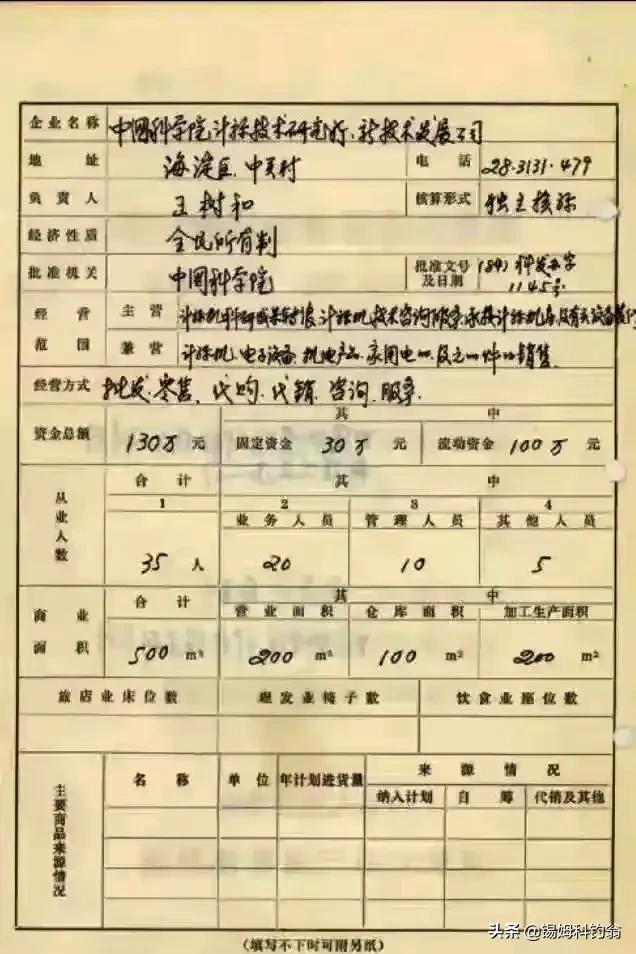 企业名称 中国科学院计标技术研究所新技术发展公司
地址 海淀区中关村 电话 28·3131·479
负责人 王树和 核算形式 独立核标
经济性质 全民所有制
批准机关 中国科学院 批准文号及日期 (84)科发办字1145号
经营范围 主营 计标机科研成果转让、计标机技术咨询服务、承接计标机
兼营 计标机、电子设备、机电产品、家用电 的销售
经营方式 批发、零售、代购、代销、咨询、服务
其中
资金总额 130万元 固定资金 30万元 流动资金 100万元
从业人数 合计 其中
1 2 3 4
业务人员 管理人员 其他人员
35人 20 10 5
商业面积 合计 其中
营业面积 仓库面积 加工生产面积
500 m² 200 m² 100 m² 200 m²
旅店业床位数 理发业椅子数 饮食业座位数
主要商品来源情况 名称 单位 年计划进货量 来源情况
纳入计划 自筹 代销及其他
(填写不下时可附另纸)
头条 @锡姆科钓翁